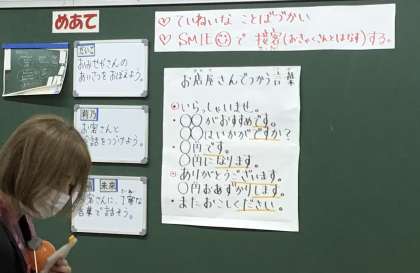 めあて
♡ ていねいな ことばづかい
♡ SMILE で 接客(おきゃくさんとはなす)する。
おみせやさんの
あいさつをおぼえよう。
お客さんと
会話をつづけよう。
未来
お客さんに、丁寧な
言葉で話そう。
お店屋さんでつかう言葉
いらっしゃいませ。
・○○がおすすめです。
・○○はいかがですか?
・○円です。
・○円になります。
ありがとうございます。
○円おあずかりします。
・またおこしください。